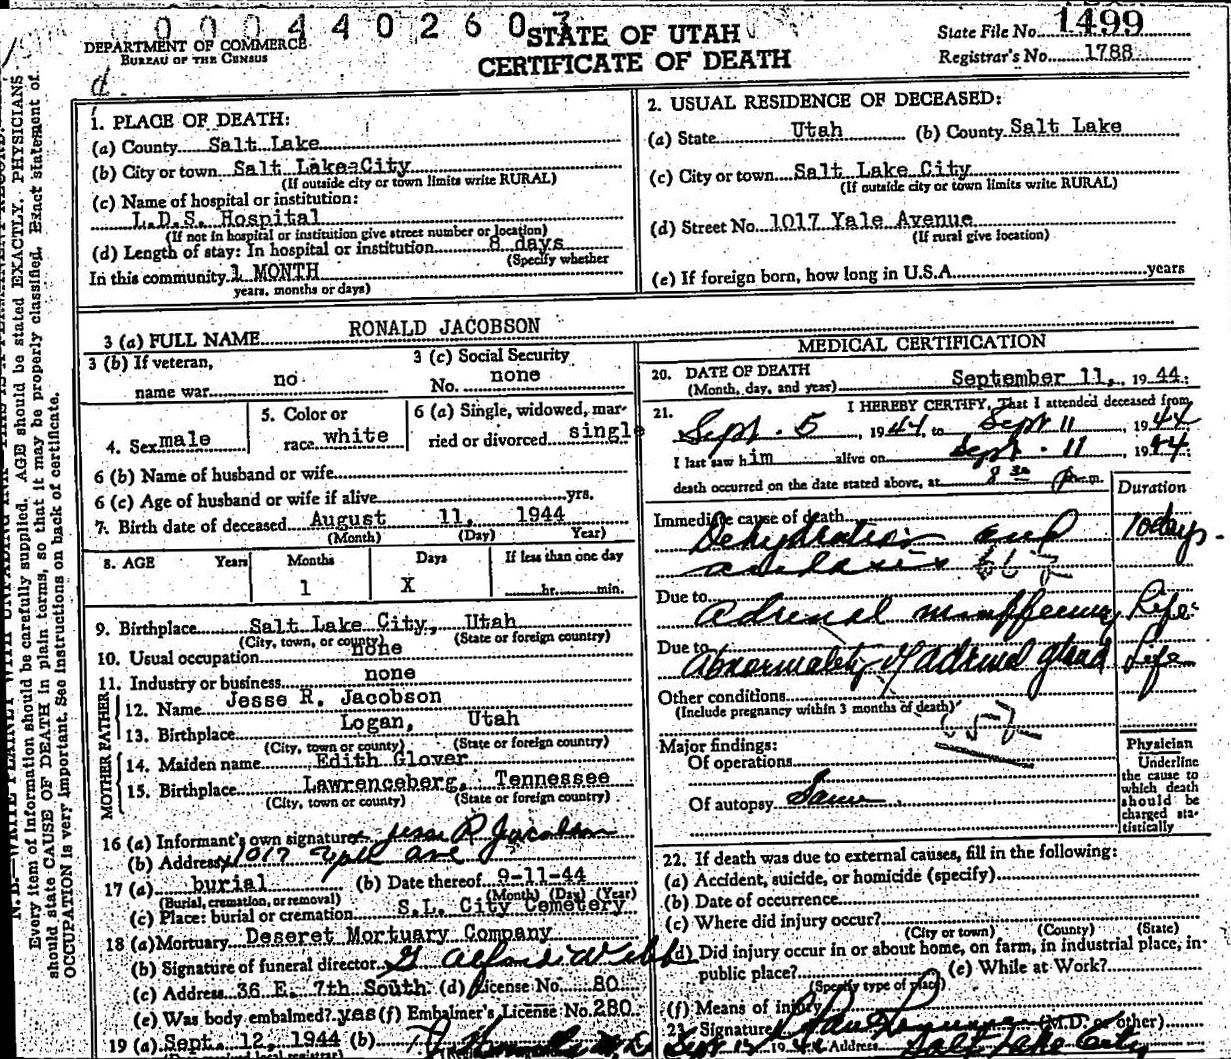 0 0 0 4 4 0 2 6 0 3
DEPARTMENT OF COMMERCE
BUREAU OF THE CENSUS
STATE OF UTAH
CERTIFICATE OF DEATH
State File No. 1499
Registrar's No. 1788
Every item of information should be carefully supplied. AGE should be stated EXACTLY. PHYSICIANS
should state CAUSE OF DEATH in plain terms, so that it may be properly classified. Exact statement of
OCCUPATION is very important. See instructions on back of certificate.
1. PLACE OF DEATH:
(a) County Salt Lake
(b) City or town Salt Lake City
(If outside city or town limits write RURAL)
(c) Name of hospital or institution:
L.D.S. Hospital
(If not in hospital or institution give street number or location)
(d) Length of stay: In hospital or institution 8 days
(Specify whether
In this community 1 MONTH
years, months or days)
2. USUAL RESIDENCE OF DECEASED:
(a) State Utah (b) County Salt Lake
(c) City or town Salt Lake City
(If outside city or town limits write RURAL)
(d) Street No. 1017 Yale Avenue
(If rural give location)
(e) If foreign born, how long in U.S.A. years
3 (a) FULL NAME RONALD JACOBSON
3 (b) If veteran,
name war no
3 (c) Social Security
No. none
4. Sex male
5. Color or
race white
6 (a) Single, widowed, mar-
ried or divorced single
6 (b) Name of husband or wife
6 (c) Age of husband or wife if alive yrs.
7. Birth date of deceased August 11, 1944
(Month) (Day) Year)
8. AGE Years Months Days If less than one day
1 X hr. min.
9. Birthplace Salt Lake City, Utah
(City, town, or county) (State or foreign country)
10. Usual occupation none
11. Industry or business none
FATHER
12. Name Jesse R. Jacobson
13. Birthplace Logan, Utah
(City, town or county) (State or foreign country)
MOTHER
14. Maiden name Edith Glover
15. Birthplace Lawrenceberg, Tennessee
(City, town or county) (State or foreign country)
16 (a) Informant's own signature Jesse R Jacobson
(b) Address 1017 Yale Ave
17 (a) burial (b) Date thereof 9-11-44
(Burial, cremation, or removal) (Month) (Day) (Year)
(c) Place: burial or cremation S.L. City Cemetery
18 (a) Mortuary Deseret Mortuary Company
(b) Signature of funeral director Alford Webb
(c) Address 36 E. 7th South (d) License No. 80
(e) Was body embalmed? yes (f) Embalmer's License No. 280
19 (a) Sept. 12, 1944 (b)
MEDICAL CERTIFICATION
20. DATE OF DEATH
(Month, day, and year) September 11, 1944
21. I HEREBY CERTIFY, That I attended deceased from
Sept. 5, 1944, to Sept 11, 1944
I last saw him alive on Sept. 11 1944
death occurred on the date stated above, at 8 30 P. m.
Duration
Immediate cause of death
Dehydration and 10 days
acidosis
Due to Adrenal insufficiency Life
Due to Abnormality of Adrenal gland Life
Other conditions
(Include pregnancy within 3 months of death)
Major findings:
Of operations
Of autopsy Same
Physician
Underline
the cause to
which death
should be
charged sta-
tistically
22. If death was due to external causes, fill in the following:
(a) Accident, suicide, or homicide (specify)
(b) Date of occurrence
(c) Where did injury occur?
(City or town) (County) (State)
(d) Did injury occur in or about home, on farm, in industrial place, in
public place? (e) While at Work?
(Specify type of place)
(f) Means of injury
23. Signature (M.D. or other)
Sept 12 1944 Address Salt Lake City